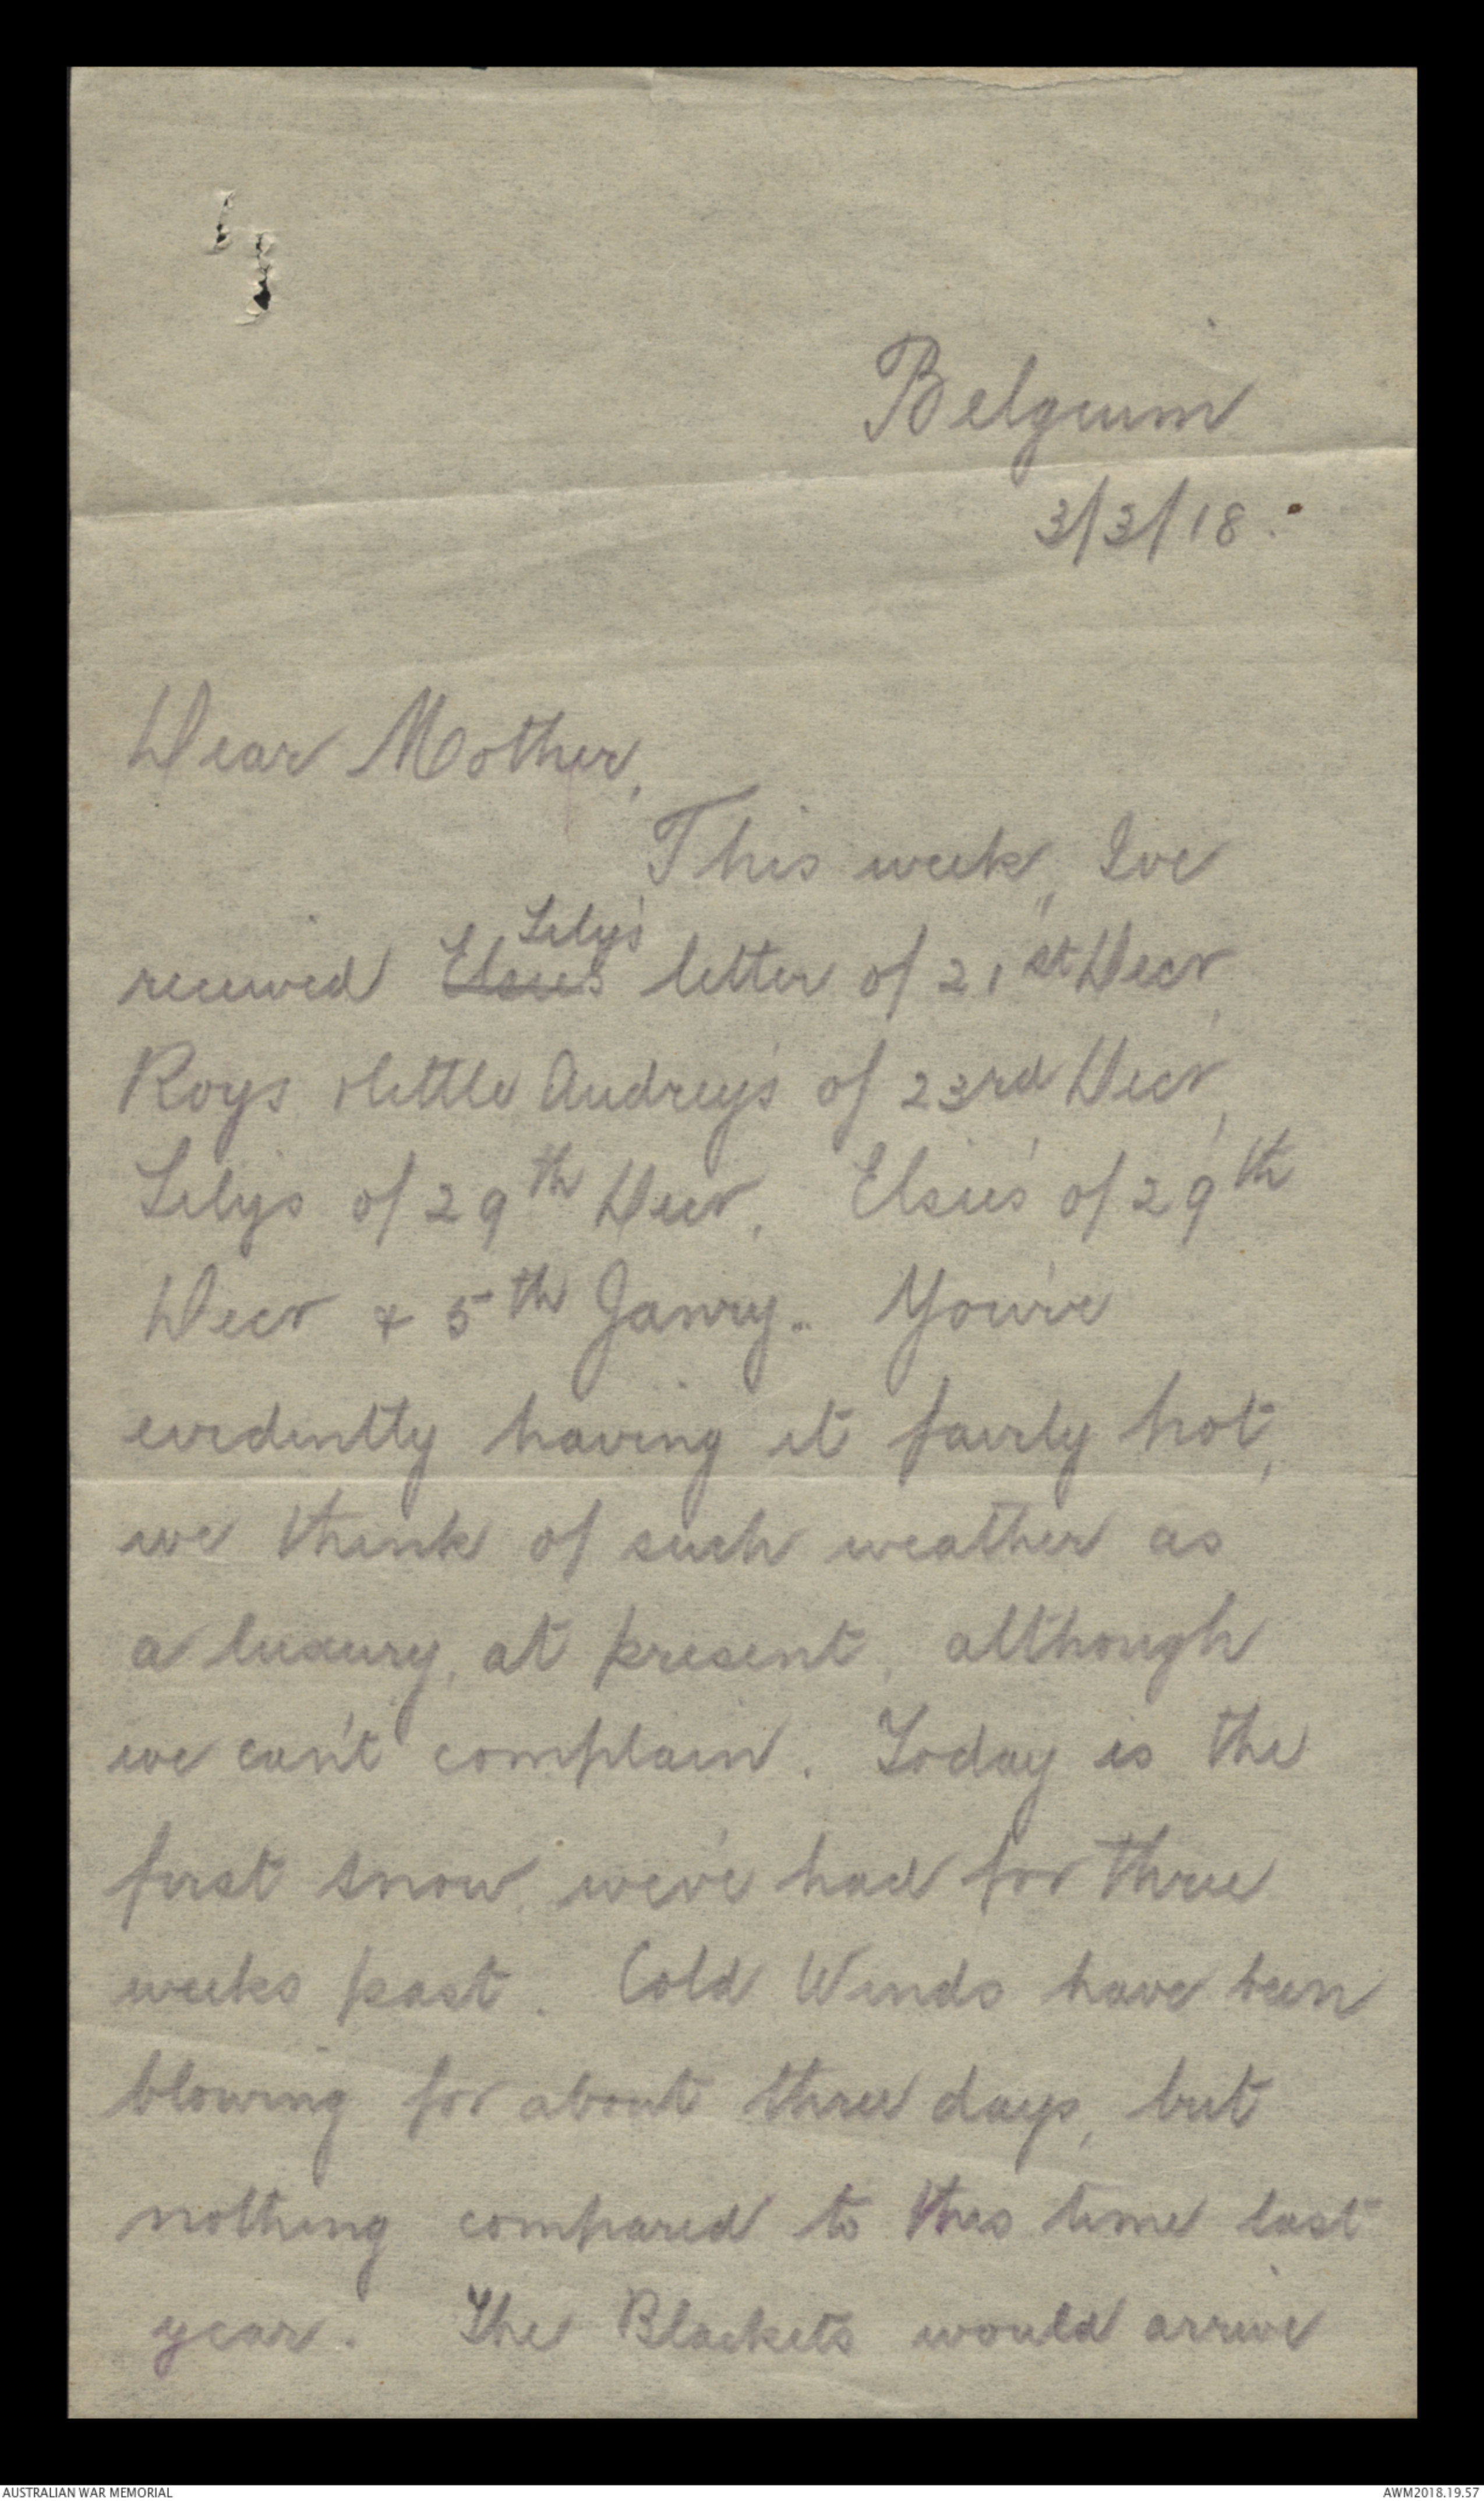 Belgium
3/3/18.
Dear Mother,
This week, I've
received Elsie's Lily's letter of 21st Decr,
Roys & little Audrey's of 23rd Decr,
Lily's of 29th Decr, Elsie's of 29th
Decr & 5th Janry.. You've
evidently having it fairly hot,
we think of such weather as
a luxury, at present, although
we can't complain. Today is the
first snow, we've had for three
weeks past. Cold Winds have been
blowing for about three days, but
nothing compared to this time last
year. The Blackets would arrive
AUSTRALIAN WAR MEMORIAL
AWM2018.19.57